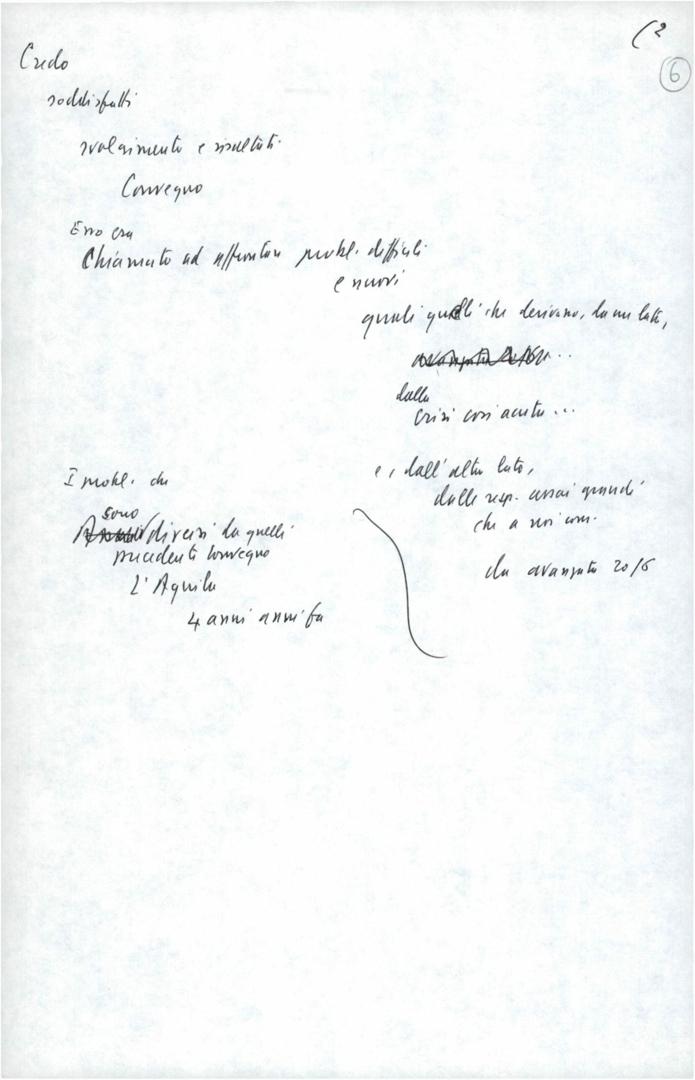 (2
6
Credo
soddisfatti
svolgimento e risultati
Convegno
Esso era
Chiamato ad affrontare probl. difficili
e nuovi
quali quelli che derivano, da un lato,
dalla
crisi così acuta...
e, dall'altro lato,
dalle resp. assai grandi
che a noi com.
da avanzata 20/6
I probl. che
sono
diversi da quelli
precedenti convegno
L'Aquila
4 anni anni fa